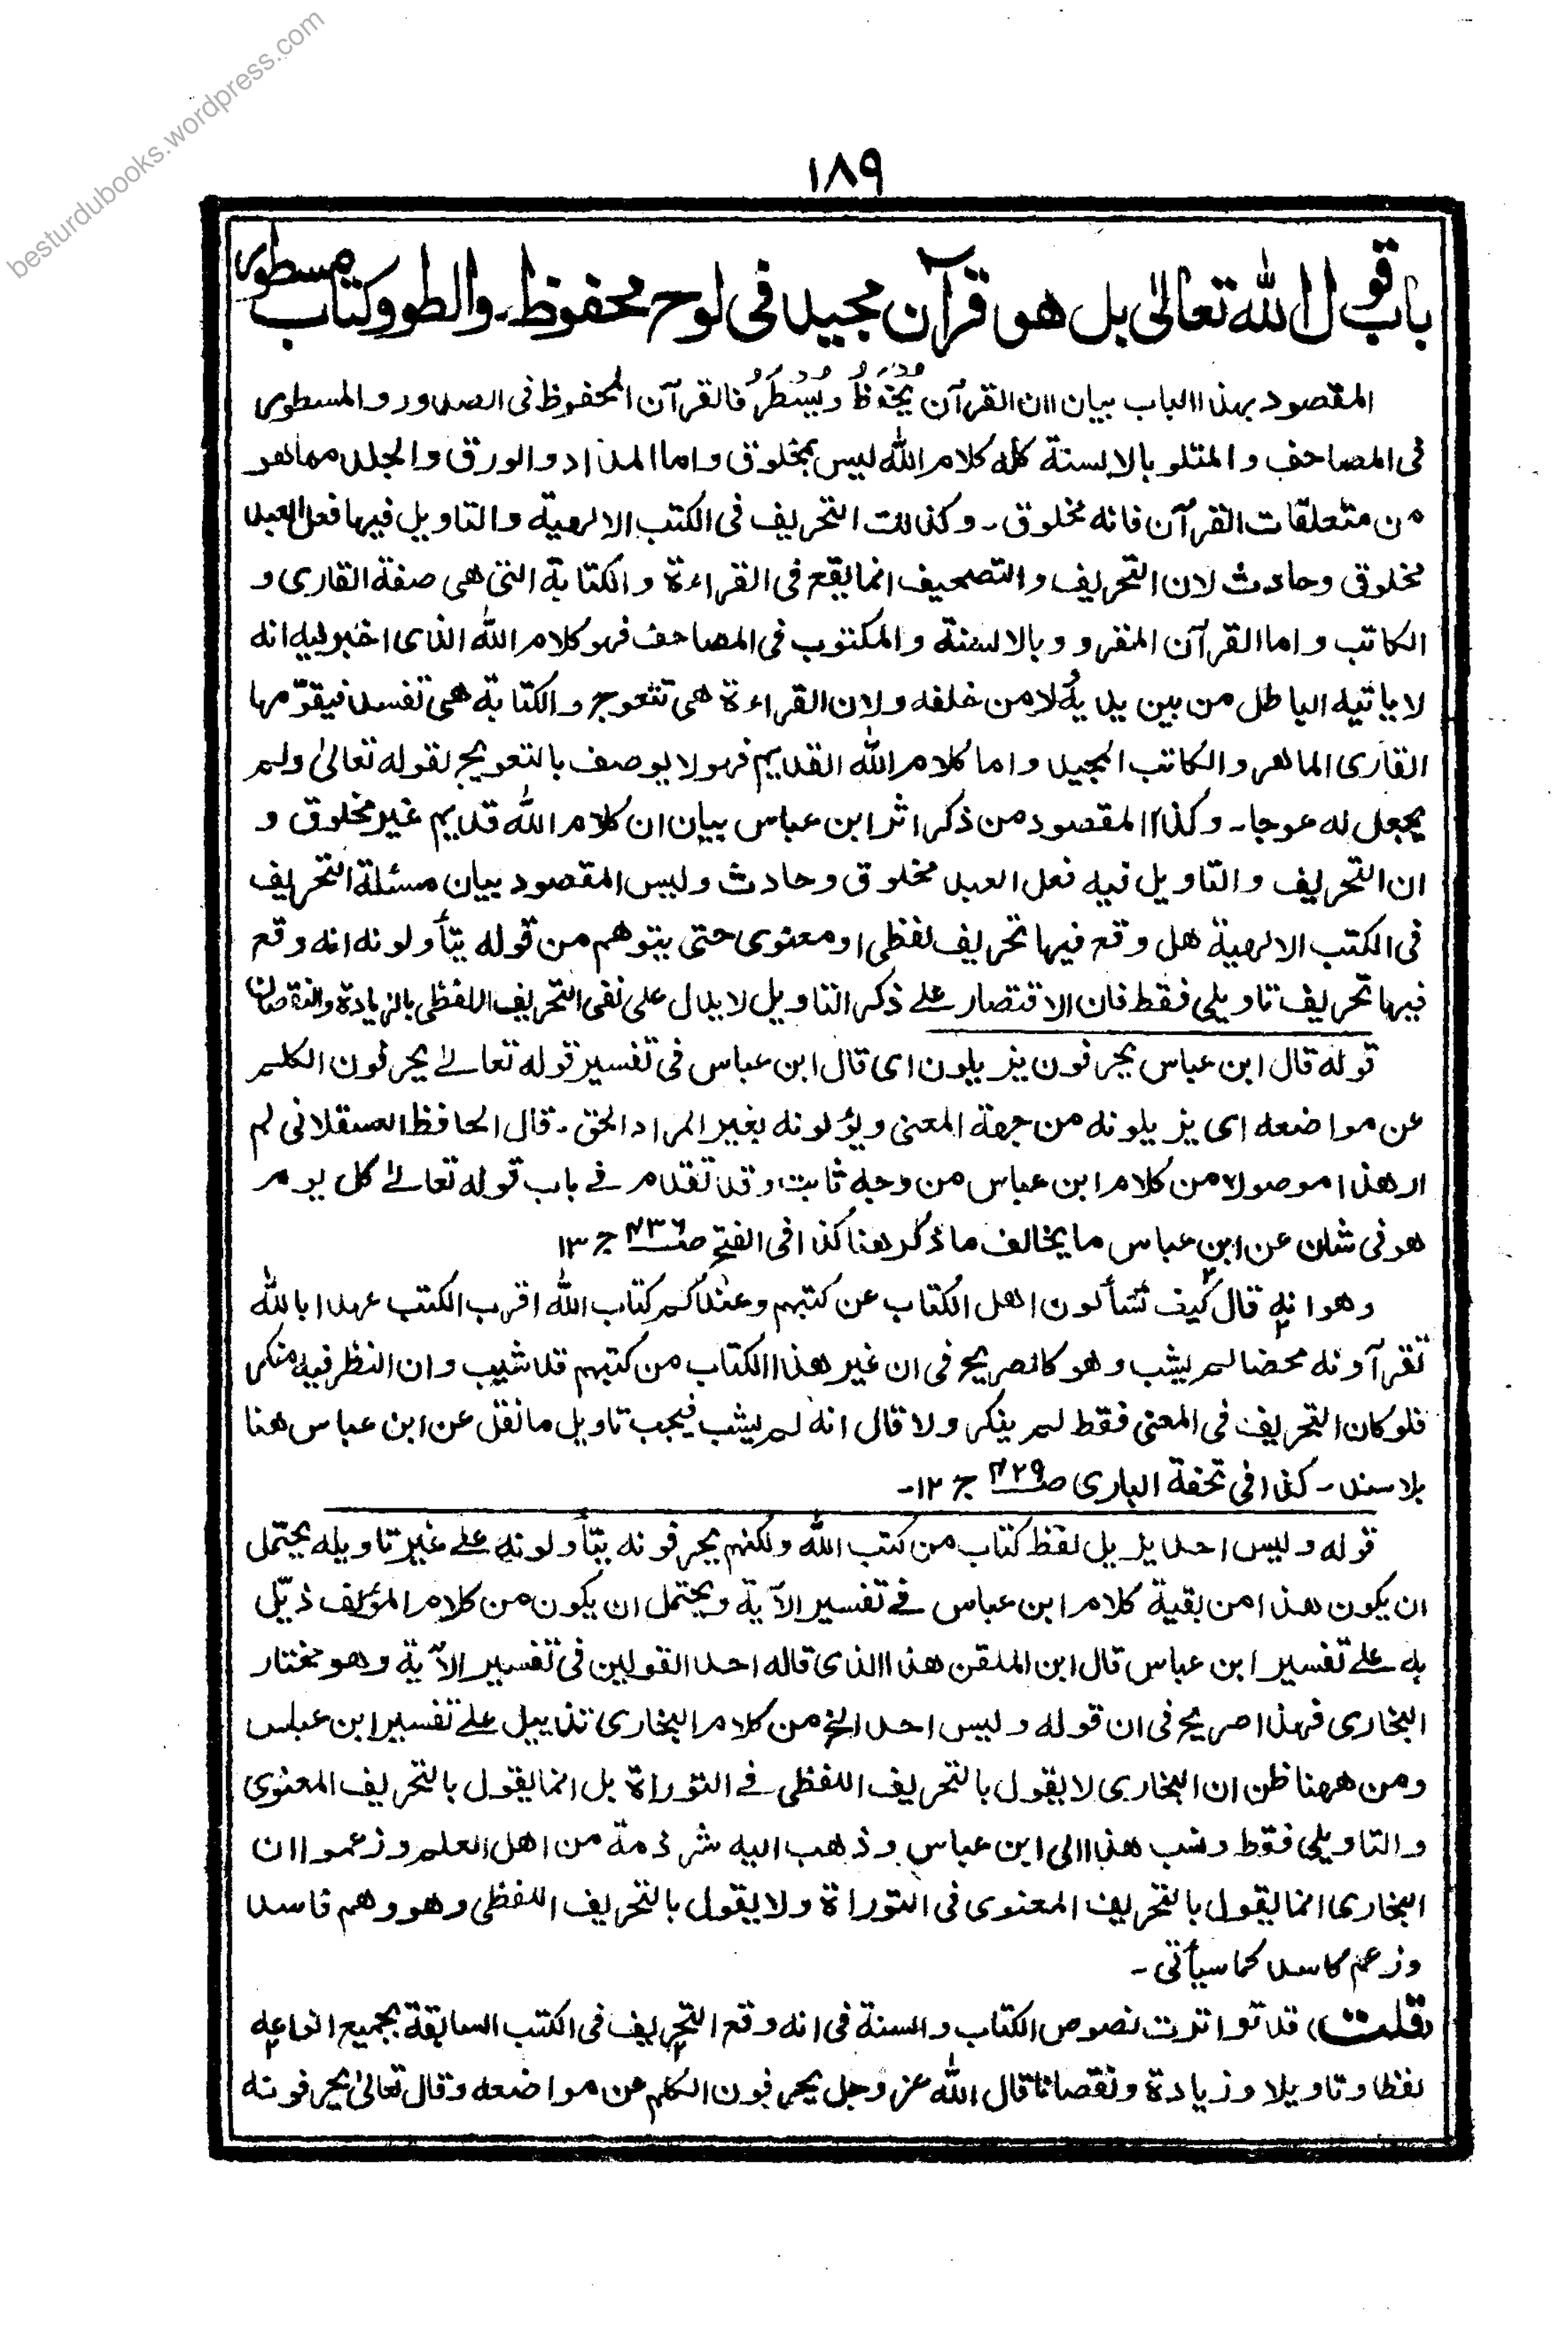 besturdubooks.wordpress.com
١٨٩
باب قول الله تعالىٰ بل هو قرآن مجيد فى لوح محفوظ۔ والطور وكتاب مسطور
المقصود بهذا الباب بيان ان القرآن يُحْفَظُ ويُسْطَرُ فالقرآن المحفوظ فى الصدور والمسطور
فى المصاحف والمتلو بالالسنة كله كلام الله ليس بمخلوق واما المداد والورق والجلد مما هو
من متعلقات القرآن فانه مخلوق۔ وكذلك التحريف فى الكتب الالهية والتاويل فيها فعل العبد
مخلوق وحادث لان التحريف والتصحيف انما يقع فى القراءة والكتابة التى هى صفة القارى و
الكاتب واما القرآن المقروو بالالسنة والمكتوب فى المصاحف فهو كلام الله الذى اخبر فيه انه
لا ياتيه الباطل من بين يديه ولا من خلفه ولان القراءة هى تتعوج والكتابة هى تفسد فيقوّمها
القارى الماهر والكاتب المجيد واما كلام الله القديم فهو لا يوصف بالتعويج لقوله تعالىٰ ولم
يجعل له عوجا۔ وكذا المقصود من ذكر اثر ابن عباس بيان ان كلام الله قديم غير مخلوق و
ان التحريف والتاويل فيه فعل العبد مخلوق وحادث وليس المقصود بيان مسئلة التحريف
فى الكتب الالهية هل وقع فيها تحريف لفظى او معنوى حتى يتوهم من قوله يتأولونه انه وقع
فيها تحريف تاويلى فقط فان الاقتصار على ذكر التاويل لا يدل على نفى التحريف اللفظى بالزيادة والنقصان
قوله قال ابن عباس يحرفون يزيلون اى قال ابن عباس فى تفسير قوله تعالےٰ يحرفون الكلم
عن مواضعه اى يزيلونه من جهة المعنى ويؤلونه بغير المراد الحق۔ قال الحافظ العسقلانى لم
ار هذا موصولا من كلام ابن عباس من وجه ثابت وقد تقدم فے باب قوله تعالےٰ كل يوم
هو فى شان عن ابن عباس ما يخالف ما ذكر هنا كذا فى الفتح صـ ۴۳۶ ج ١٣
وهو انه قال كيف تسألون اهل الكتاب عن كتبهم وعندكم كتاب الله اقرب الكتب عهدا بالله
تقرأونه محضا لم يشب وهو كالصريح فى ان غير هذا الكتاب من كتبهم قد شيب وان النظر فيه منكر
فلو كان التحريف فى المعنى فقط لم ينكر ولا قال انه لم يشب فيجب تاويل ما نقل عن ابن عباس هنا
بلا سند۔ كذا فى تحفة البارى صـ ۴۲۹ ج ١٢۔
قوله وليس احد يزيل لفظ كتاب من كتب الله ولكنهم يحرفونه يتأولونه علے غير تاويله يحتمل
ان يكون هذا من بقية كلام ابن عباس فے تفسير الآية ويحتمل ان يكون من كلام المؤلف ذيّل
به علے تفسير ابن عباس قال ابن الملقن هذا الذى قاله احد القولين فى تفسير الآية وهو مختار
البخارى فهذا صريح فى ان قوله وليس احد الخ من كلام البخارى تذييل علے تفسير ابن عباس
ومن ههنا ظن ان البخارى لا يقول بالتحريف اللفظى فے التوراة بل انما يقول بالتحريف المعنوى
والتاويلى فقط ونسب هذا الى ابن عباس وذهب اليه شرذمة من اهل العلم وزعموا ان
البخارى انما يقول بالتحريف المعنوى فى التوراة ولا يقول بالتحريف اللفظى وهو وهم فاسد
وزعم كاسد كما سيأتى۔
(قلت) قد تواترت نصوص الكتاب والسنة فى انه وقع التحريف فى الكتب السابقة بجميع انواعه
لفظا وتاويلا وزيادة ونقصانا قال الله عز وجل يحرفون الكلم عن مواضعه وقال تعالىٰ يحرفونه